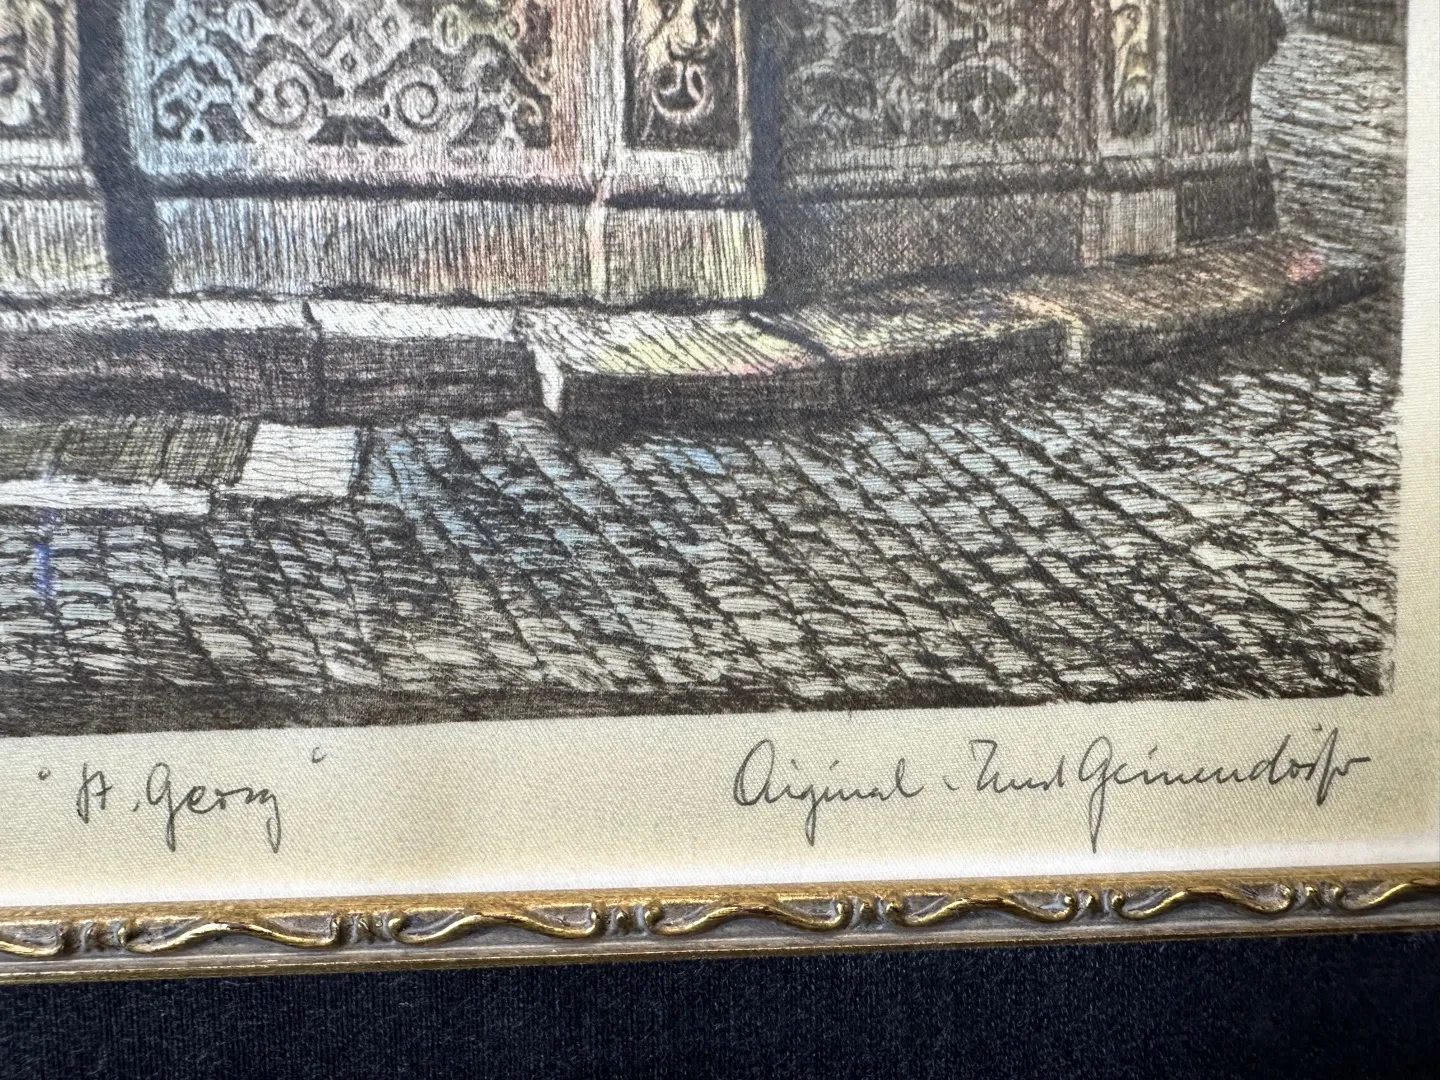 "St. Georg"
Original - Ernst Geissendörfer